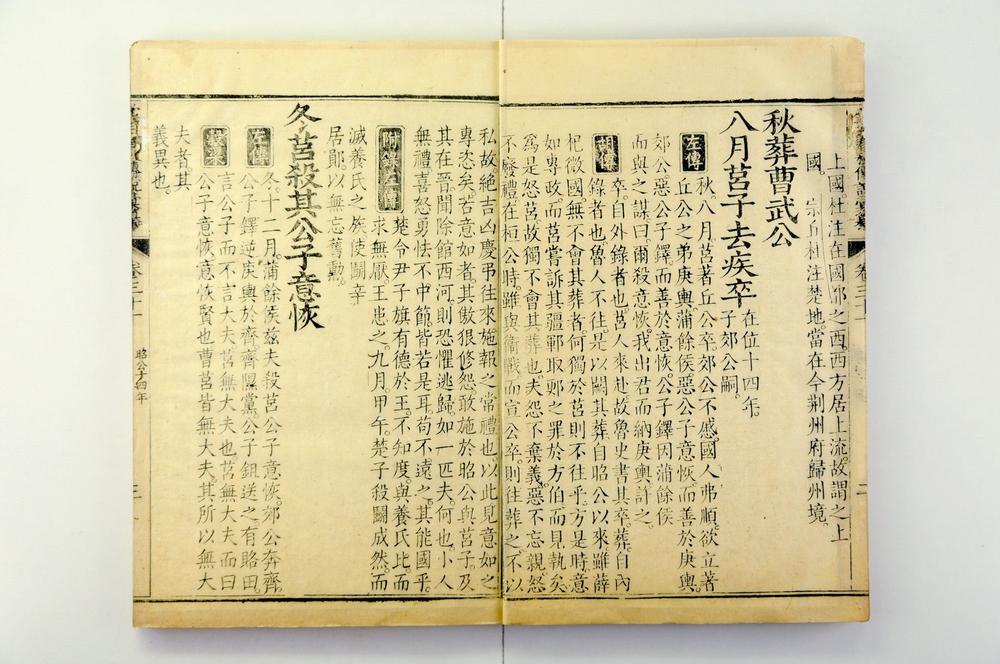 卷三十一
二
上國杜注在國都之西西方居上流故謂之上
國 宗丘杜注楚地當在今荆州府歸州境
秋葬曹武公
八月莒子去疾卒 在位十四年
子郊公嗣
左傳 秋八月莒著丘公卒郊公不慼國人弗順欲立著
丘公之弟庚輿蒲餘侯惡公子意恢而善於庚輿
郊公惡公子鐸而善於意恢公子鐸因蒲餘侯
而與之謀曰爾殺意恢我出君而納庚輿許之
胡傳 卒自外錄者也莒人來赴故魯史書其卒葬自内
錄者也魯人不往是以闕其葬自昭公以來雖薛
杞微國無不會其葬者何獨於莒則不往乎方是時意
如專政而莒嘗訴其疆鄆取郠之罪於方伯而見執矣
爲是怒莒故獨不會其葬也夫怨不棄義惡不忘親怒
不廢禮在桓公時雖與衞戰而宣公卒則往葬之不以
私故絶吉凶慶弔往來施報之常禮也以此見意如之
專恣矣若意如者其傲狠修怨敢施於昭公與莒子及
其在晉聞除館西河則恐懼逃歸如一匹夫何也小人
無禮喜怒勇怯不中節皆若是耳苟不遠之其能國乎
附錄左傳 楚令尹子旗有德於王不知度與養氏比而
求無厭王患之九月甲午楚子殺鬭成然而
滅養氏之族使鬭辛
居鄖以無忘舊勲
冬莒殺其公子意恢
左傳 冬十二月蒲餘侯兹夫殺莒公子意恢郊公奔齊
公子鐸逆庚輿於齊齊隰黨公子鉏送之有賂田
穀梁 言公子而不言大夫莒無大夫也莒無大夫而曰
公子意恢意恢賢也曹莒皆無大夫其所以無大
夫者其
義異也
卷三十一
昭公十四年
三